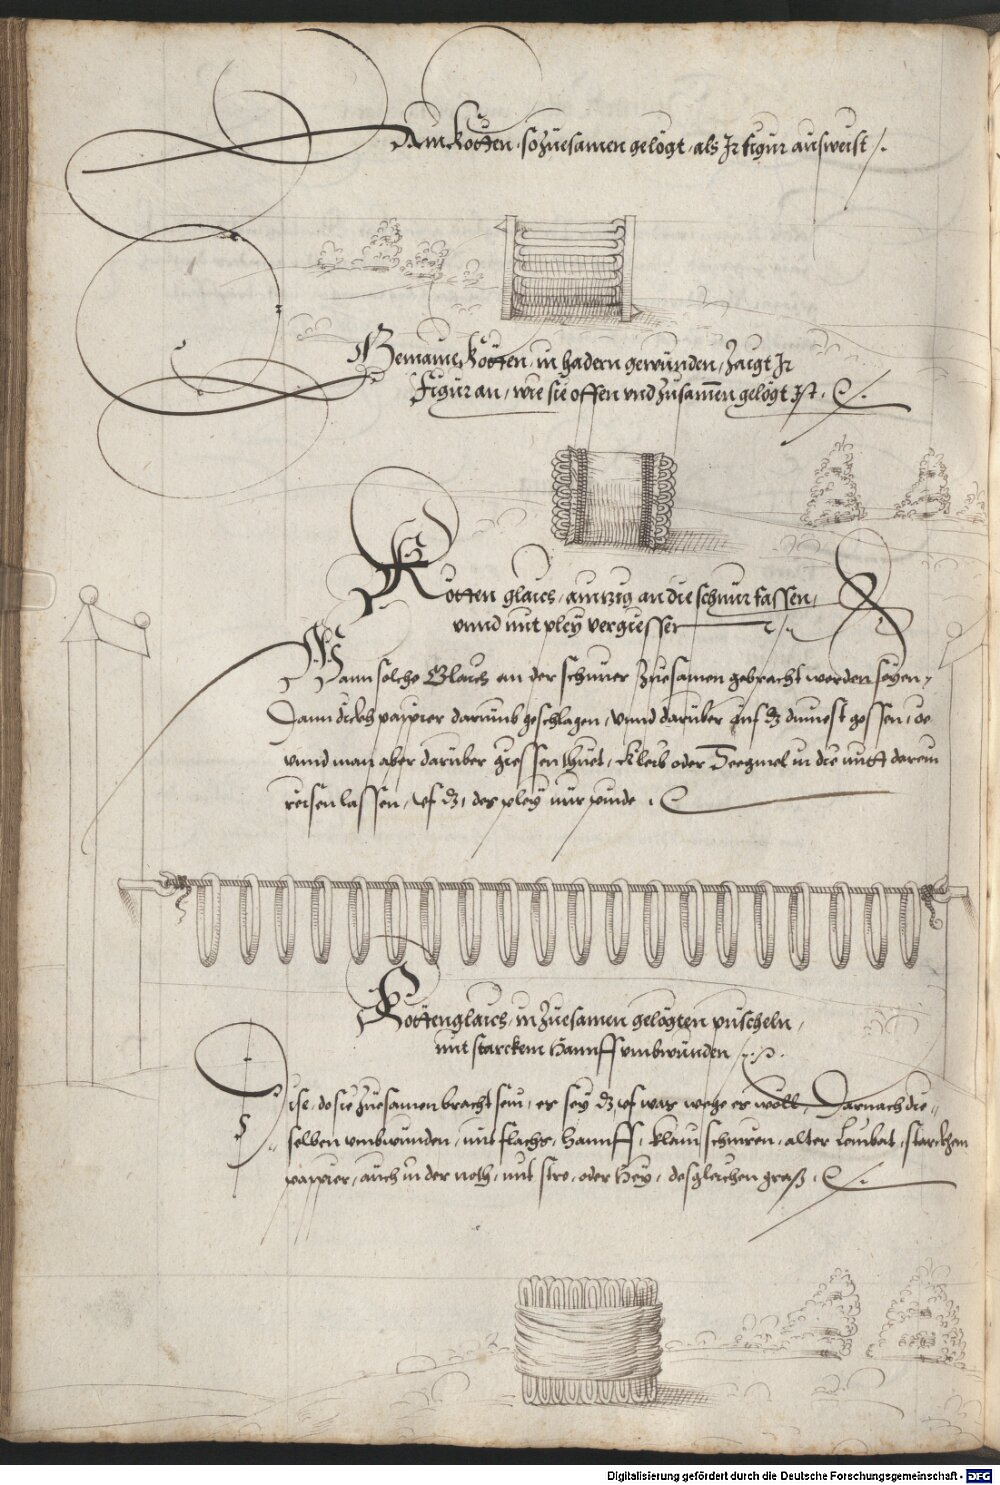 Ain Kötten, so Zuesamen gelögt, als Ir figur ausweist /.
Gemaine Kötten, in hadern gewunden, Zaigt Ir
Figur an, wie sie offen vnd Zusamen gelögt Ist.
Kötten glaich, ainzig an die schnur fassen,
vnnd mit pley vergiessen
Wann solche Glaich an der schnuer Zuesamen gebracht worden seyen,
Dann dickh pappier darumb geschlagen, vnnd darüber auf dz dinnest gossen,
vnnd man aber darüber giessen thuet, Kleib oder Seegmel in die mitt darein
reisen lassen, vf dz, des pley nur pinde.
Köttenglaich, in Zuesamen gelögten puscheln,
mit starckem Hannff vmbwunden
Dise, do sie Zuesamen bracht sein, es sey dz vf was wege es wöll, Darnach die
selben vmbwunden, mit flachs, Hannff, klain schnüren, alter Leinbat, starckhem
pappier, auch in der noth, mit stro, oder Hey, desgleichen graß.
Digitalisierung gefördert durch die Deutsche Forschungsgemeinschaft - DFG